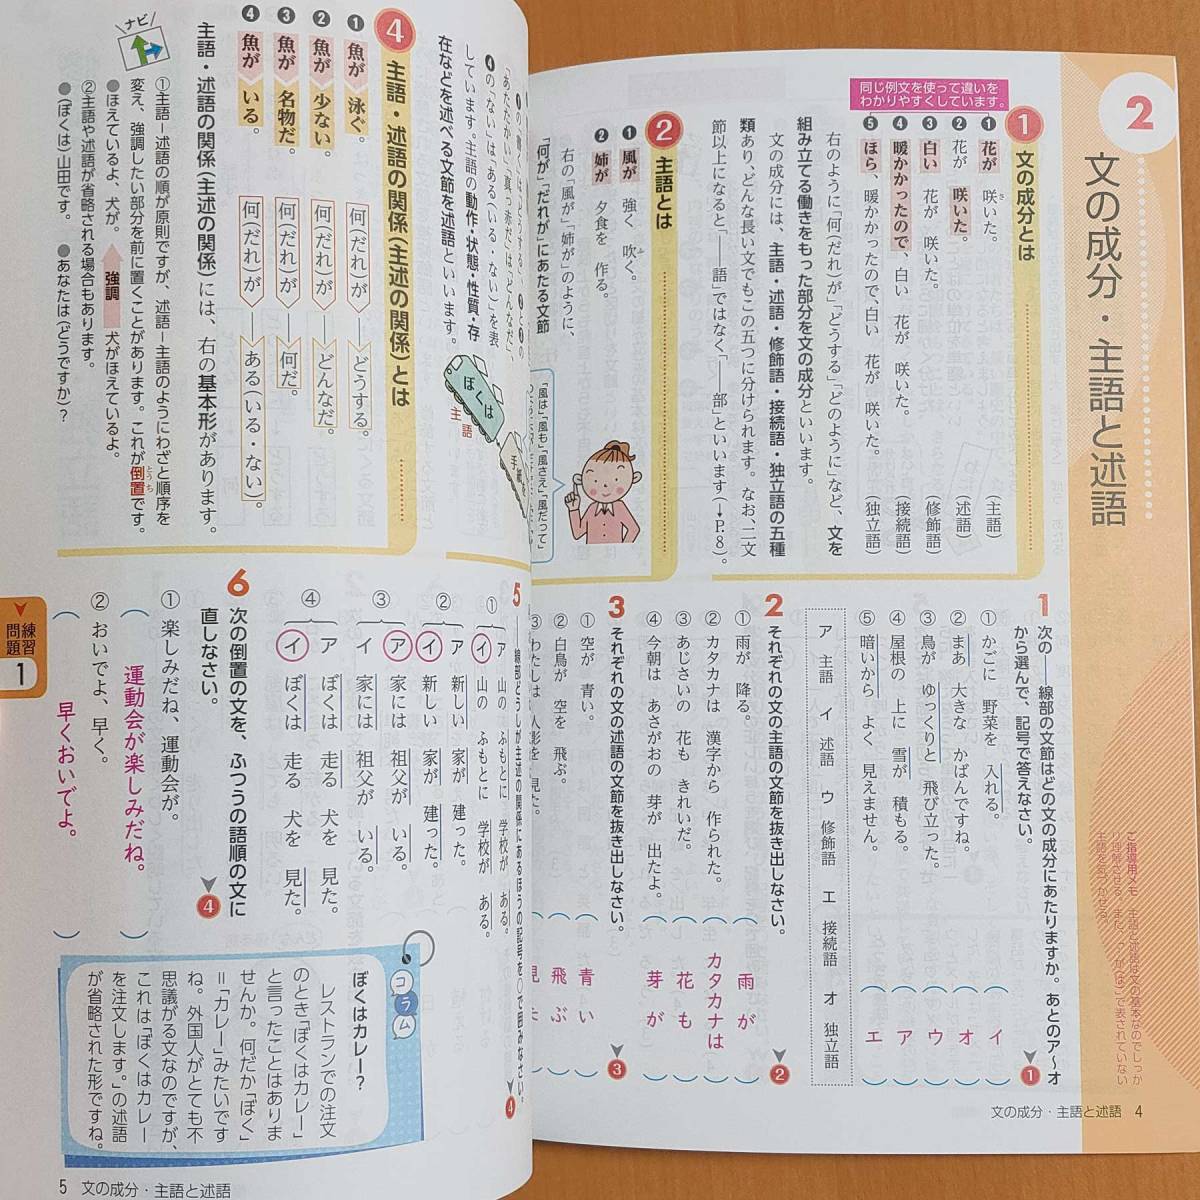 2
文の成分・主語と述語
同じ例文を使って違いを
わかりやすくしています。
1 文の成分とは
❶ 花が 咲いた。 (主語)
❷ 花が 咲いた。 (述語)
❸ 白い 花が 咲いた。 (修飾語)
❹ 暖かかったので、白い 花が 咲いた。 (接続語)
❺ ほら、暖かかったので、白い 花が 咲いた。 (独立語)
右のように「何(だれ)が」「どうする」「どのように」など、文を
組み立てる働きをもった部分を文の成分といいます。
文の成分には、主語・述語・修飾語・接続語・独立語の五種
類あり、どんな長い文でもこの五つに分けられます。なお、二文
節以上になると「――語」ではなく「――部」といいます(→P.8)。
2 主語とは
❶ 風が 強く 吹く。
❷ 姉が 夕食を 作る。
右の「風が」「姉が」のように、
「何が」「だれが」にあたる文節
「風は」「風も」「風さえ」「風だって」
1 次の――線部の文節はどの文の成分にあたりますか。あとのア〜オ
から選んで、記号で答えなさい。
❶
① かごに 野菜を 入れる。 (イ)
② まあ 大きな かばんですね。 (オ)
③ 鳥が ゆっくりと 飛び立った。 (ウ)
④ 屋根の 上に 雪が 積もる。 (ア)
⑤ 暗いから よく 見えません。 (エ)
ア 主語 イ 述語 ウ 修飾語 エ 接続語 オ 独立語
2 それぞれの文の主語の文節を抜き出しなさい。
❷
① 雨が 降る。 (雨が)
② カタカナは 漢字から 作られた。 (カタカナは)
③ あじさいの 花も きれいだ。 (花も)
④ 今朝は あさがおの 芽が 出たよ。 (芽が)
3 それぞれの文の述語の文節を抜き出しなさい。
❸
① 空が 青い。 (青い)
② 白鳥が 空を 飛ぶ。 (飛ぶ)
③ わたしは 人影を 見た。 (見た)
ご指導用メモ 主語と述語は文の基本なのでしっか
り理解させる。また、「〜が(は)」で表されていない
主語を気づかせる。
文の成分・主語と述語 4
「あたたかい」「真っ赤だ」は「どんなだ」、
❹の「ない」は「ある・いる・ない」を表
しています。主語の動作・状態・性質・存
在などを述べる文節を述語といいます。
ぼくは
主語
手紙を
4 主語・述語の関係(主述の関係)とは
❶ 魚が 泳ぐ。 何(だれ)が―どうする。
❷ 魚が 少ない。 何(だれ)が―どんなだ。
❸ 魚が 名物だ。 何(だれ)が―何だ。
❹ 魚が いる。 何(だれ)が―ある(いる・ない)。
主語・述語の関係(主述の関係)には、右の基本形があります。
ナビ
①主語―述語の順が原則ですが、述語―主語のようにわざと順序を
変え、強調したい部分を前に置くことがあります。これが倒置です。
●ほえているよ、犬が。 強調 犬がほえているよ。
②主語や述語が省略される場合もあります。
●(ぼくは)山田です。 ●あなたは(どうですか)?
5 ――線部どうしが主述の関係にあるほうの記号を○で囲みなさい。
❹
① ア 山の ふもとに 学校が ある。
イ 山の ふもとに 学校が ある。
② ア 新しい 家が 建った。
イ 新しい 家が 建った。
③ ア 家には 祖父が いる。
イ 家には 祖父が いる。
④ ア ぼくは 走る 犬を 見た。
イ ぼくは 走る 犬を 見た。
6 次の倒置の文を、ふつうの語順の文に
直しなさい。
❹
① 楽しみだね、運動会が。
(運動会が楽しみだね。)
② おいでよ、早く。
(早くおいでよ。)
コラム
ぼくはカレー?
レストランでの注文
のとき「ぼくはカレー」
と言ったことはありま
せんか。何だか「ぼく
=「カレー」みたいです
ね。外国人がとても不
思議がる文なのですが、
これは「ぼくはカレー
を注文します。」の述語
が省略された形ですね。
練習問題 1
5 文の成分・主語と述語